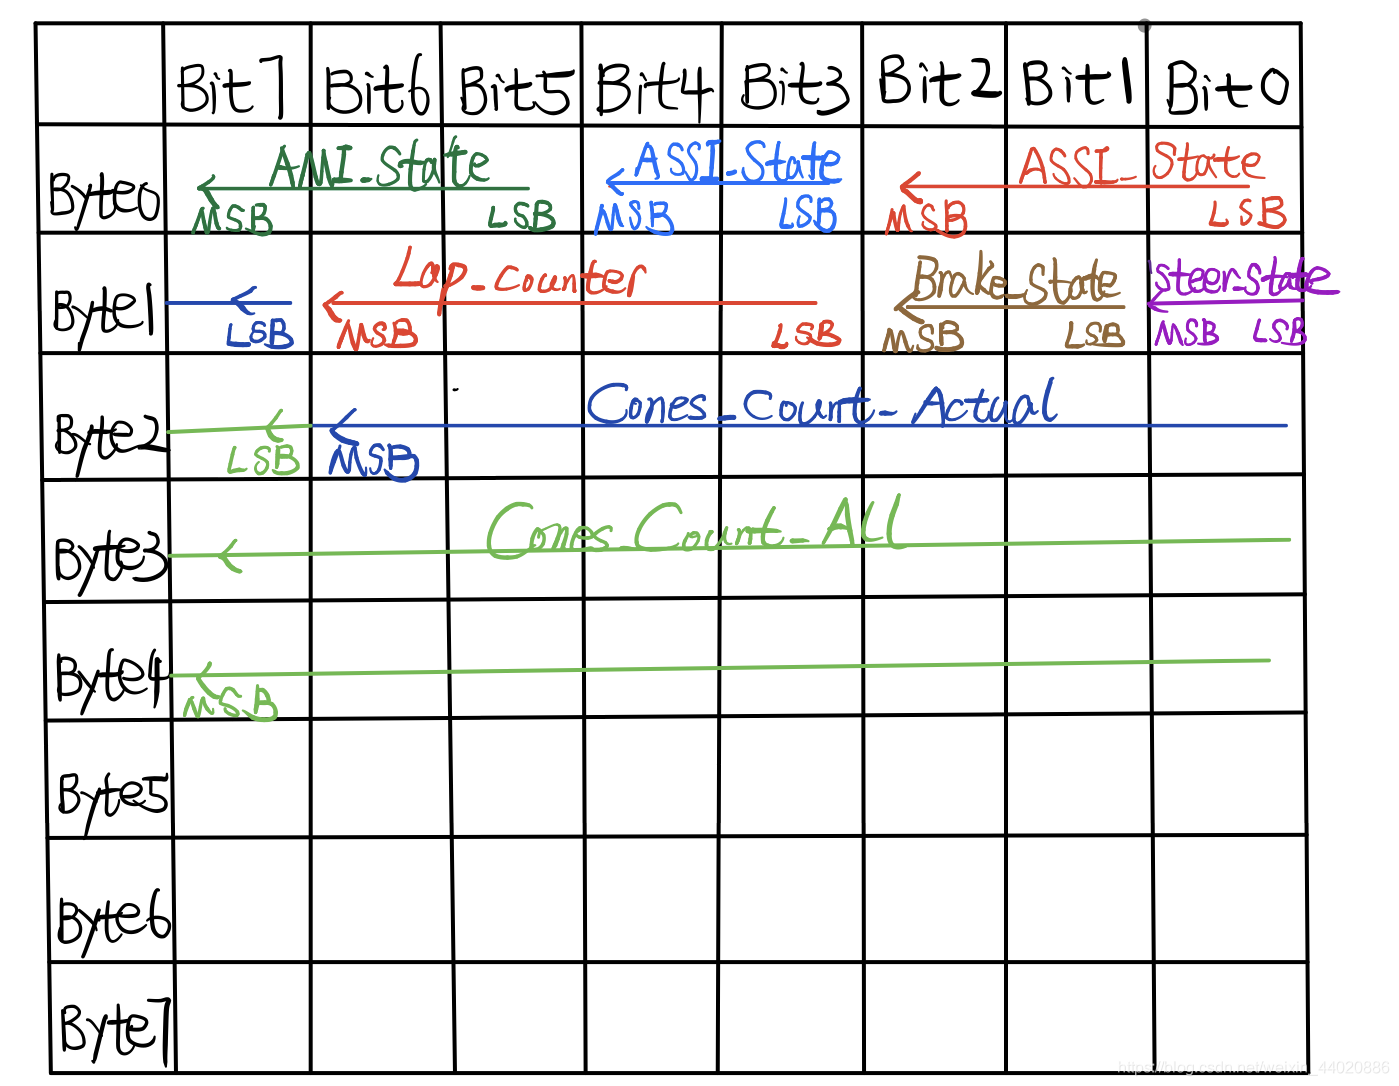 Bit7 Bit6 Bit5 Bit4 Bit3 Bit2 Bit1 Bit0
Byte0 AMI_State ASSI_State ASSI_State
MSB LSB MSB LSB MSB LSB
Byte1 Lap_counter Brake_State Steer_State
LSB MSB LSB MSB LSB MSB LSB
Byte2 Cones_Count_Actual
LSB MSB
Byte3 Cones_Count_All
Byte4
MSB
Byte5
Byte6
Byte7
https://blog.csdn.net/weixin_44020886